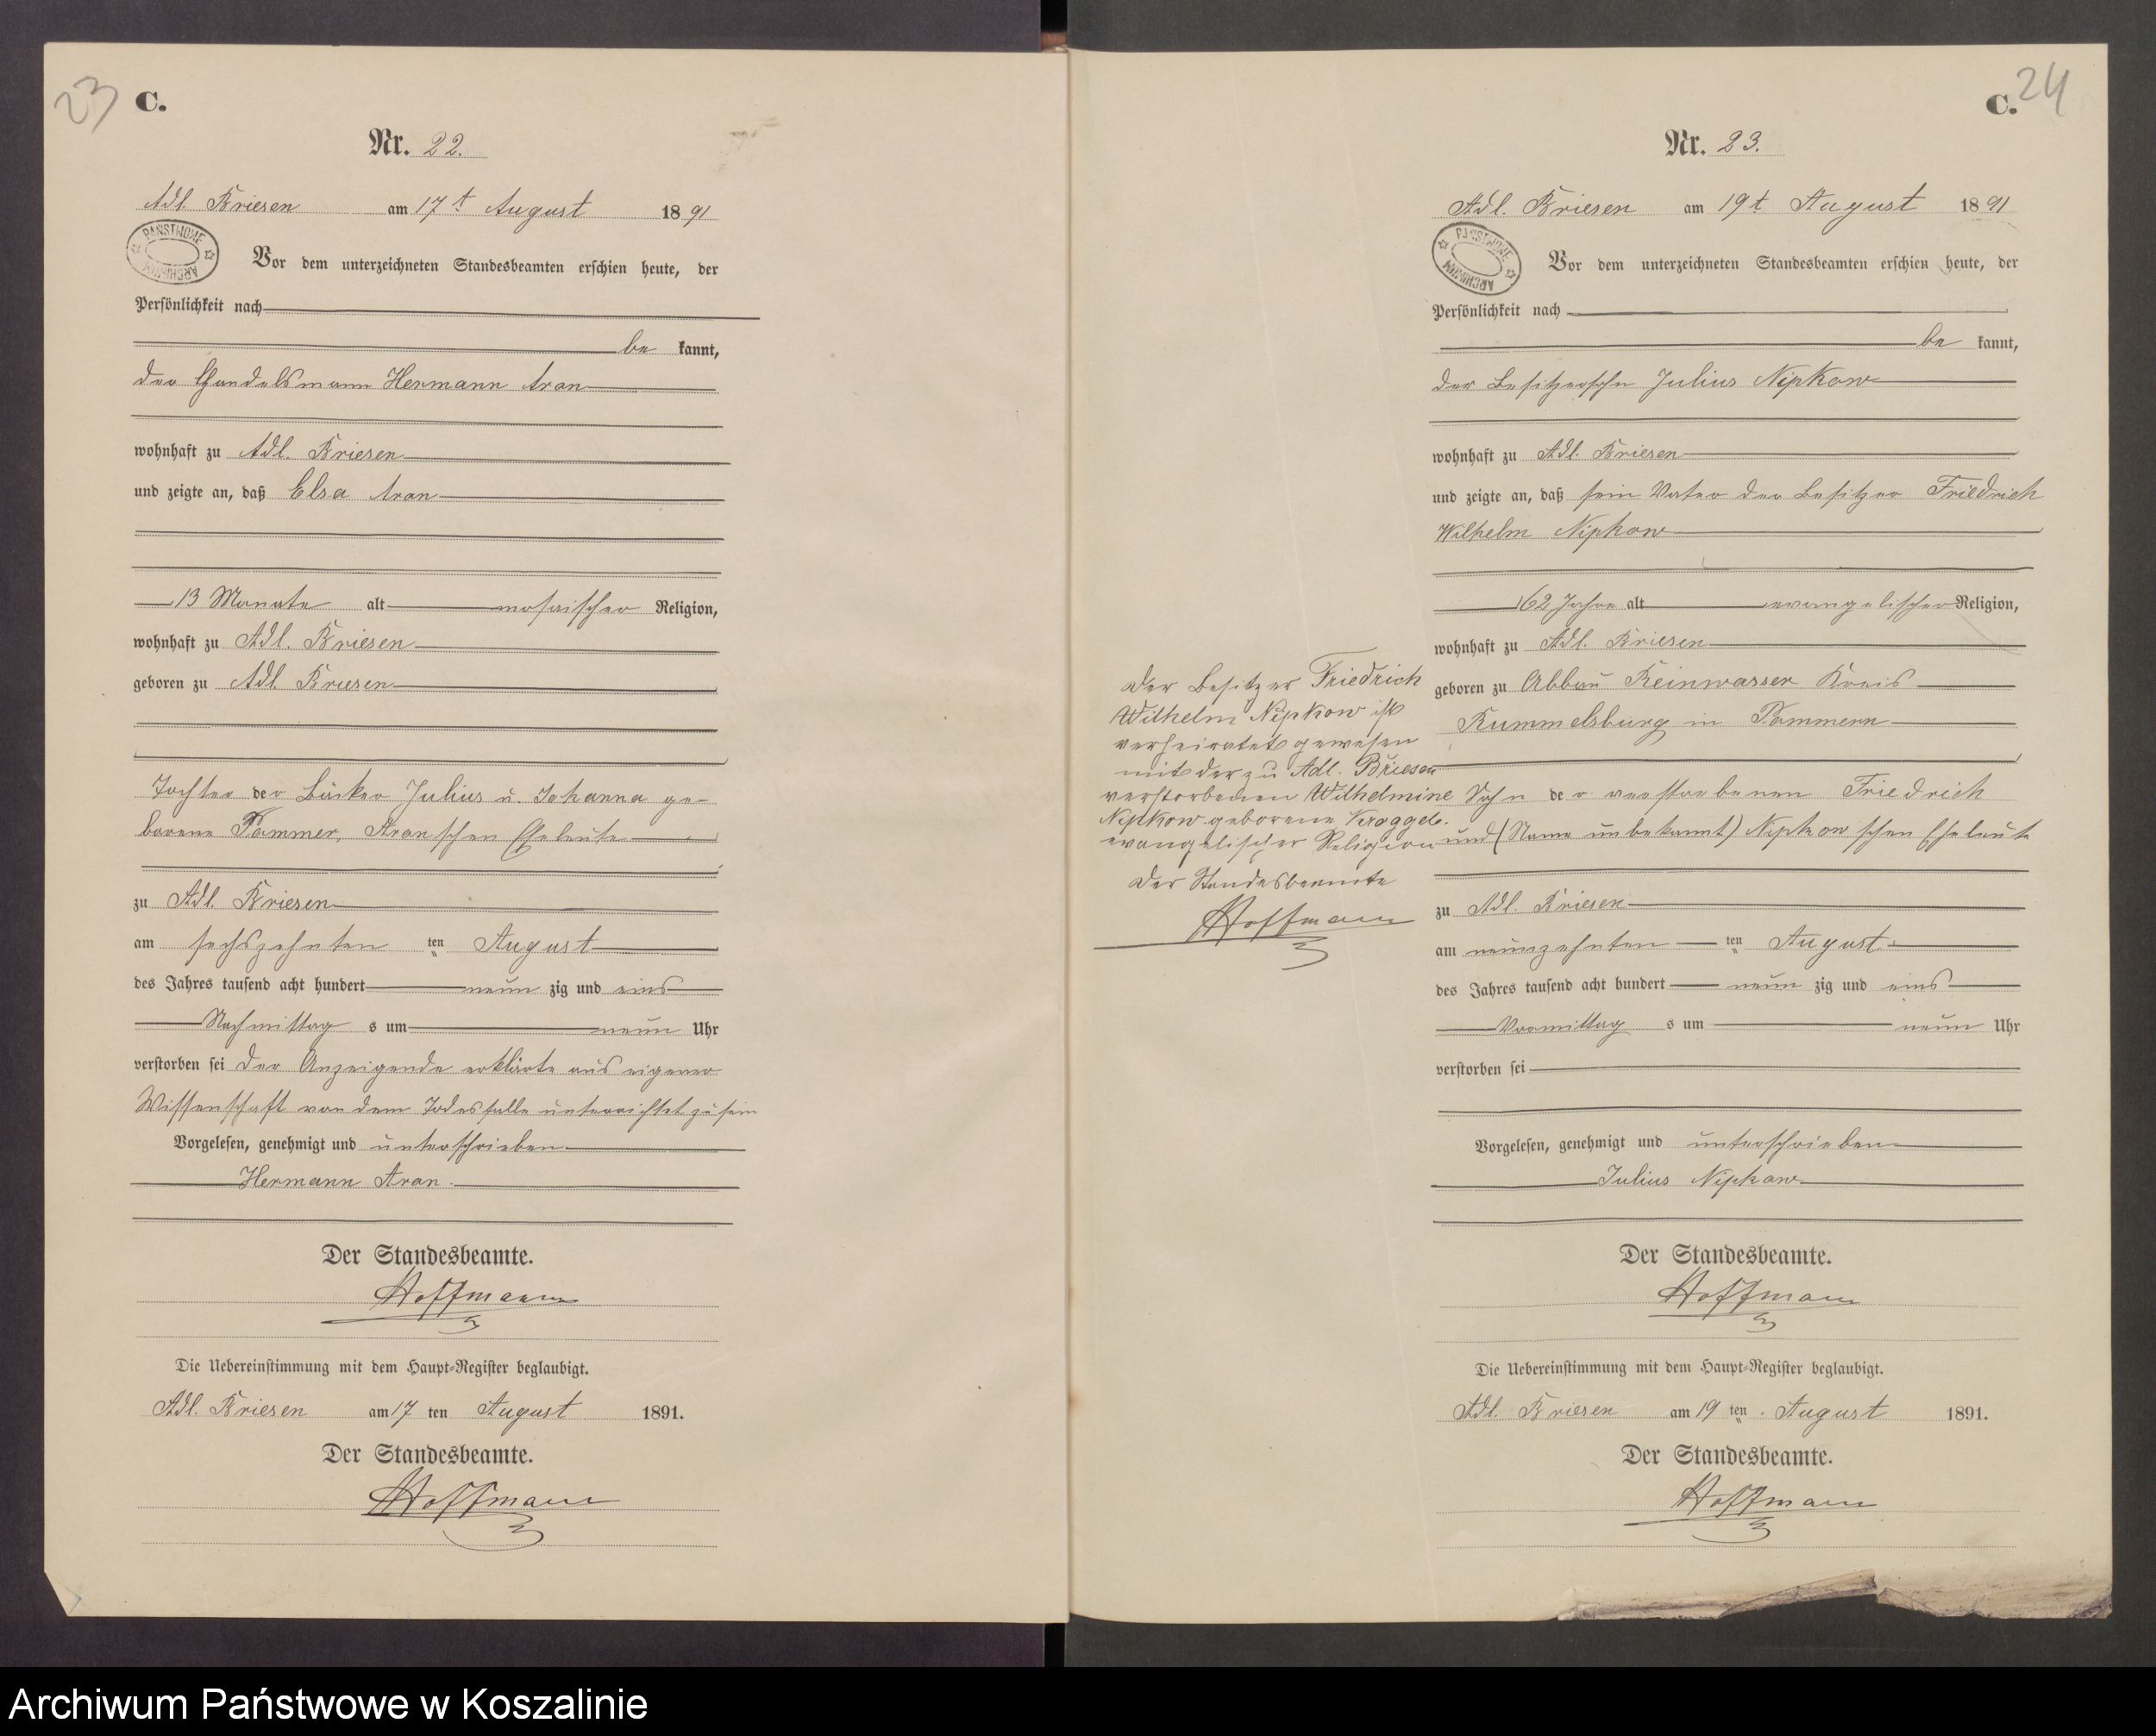 23
C.
Nr. 22.
Adl. Briesen am 17t August 1891
PAŃSTWOWE ARCHIWUM
Vor dem unterzeichneten Standesbeamten erschien heute, der
Persönlichkeit nach
be kannt,
der Handelsmann Hermann Aron
wohnhaft zu Adl. Briesen
und zeigte an, daß Elsa Aron
13 Monate alt mosaischer Religion,
wohnhaft zu Adl. Briesen
geboren zu Adl. Briesen
Tochter der Bäcker Julius u. Johanna ge-
borene Pommer, Aron'schen Eheleute
zu Adl. Briesen
am sechszehnten ten August
des Jahres tausend acht hundert neun zig und eins
Nachmittag s um neun Uhr
verstorben sei der Anzeigende erklärte aus eigener
Wissenschaft von dem Todesfalle unterrichtet zu sein
Vorgelesen, genehmigt und unterschrieben
Hermann Aron.
Der Standesbeamte.
Hoffmann
Die Uebereinstimmung mit dem Haupt-Register beglaubigt.
Adl. Briesen am 17 ten August 1891.
Der Standesbeamte.
Hoffmann
24
C.
Nr. 23.
Adl. Briesen am 19t August 1891
PAŃSTWOWE ARCHIWUM
Vor dem unterzeichneten Standesbeamten erschien heute, der
Persönlichkeit nach
be kannt,
der Besitzersohn Julius Nipkow
wohnhaft zu Adl. Briesen
und zeigte an, daß sein Vater der Besitzer Friedrich
Wilhelm Nipkow
62 Jahre alt evangelischer Religion,
wohnhaft zu Adl. Briesen
geboren zu Abbau Reinwasser Kreis
Rummelsburg in Pommern
Sohn der verstorbenen Friedrich
und (Name unbekannt) Nipkow'schen Eheleute
zu Adl. Briesen
am neunzehnten ten August
des Jahres tausend acht hundert neun zig und eins
Vormittag s um neun Uhr
verstorben sei
Vorgelesen, genehmigt und unterschrieben
Julius Nipkow
Der Standesbeamte.
Hoffmann
Die Uebereinstimmung mit dem Haupt-Register beglaubigt.
Adl. Briesen am 19 ten August 1891.
Der Standesbeamte.
Hoffmann
Der Besitzer Friedrich
Wilhelm Nipkow ist
verheiratet gewesen
mit der zu Adl. Briesen
verstorbenen Wilhelmine
Nipkow geborene
evangelischer Religion
Der Standesbeamte
Hoffmann
Archiwum Państwowe w Koszalinie